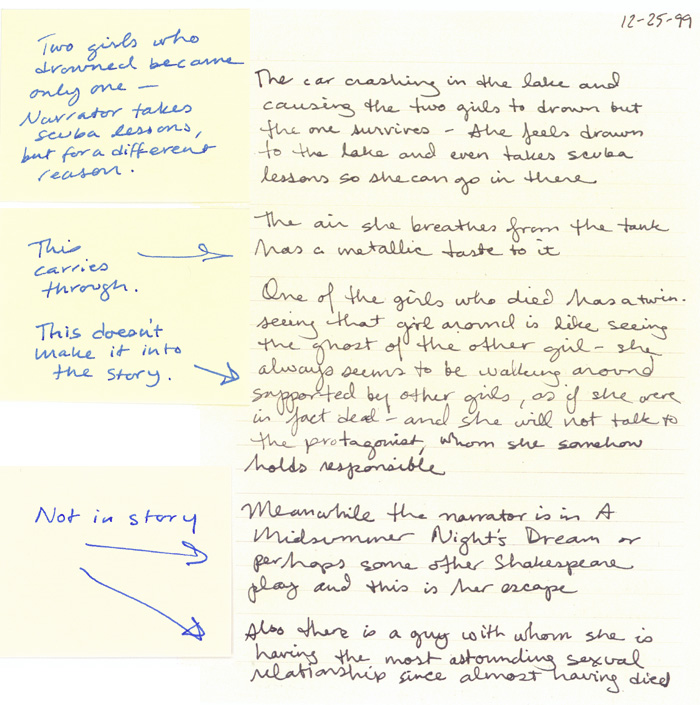 12-25-99
Two girls who
drowned became
only one —
Narrator takes
scuba lessons,
but for a different
reason.
The car crashing in the lake and
causing the two girls to drown but
the one survives - she feels drawn
to the lake and even takes scuba
lessons so she can go in there
This
carries
through.
The air she breathes from the tank
has a metallic taste to it
This doesn't
make it into
the story.
One of the girls who died has a twin.
seeing that girl around is like seeing
the ghost of the other girl - she
always seems to be walking around
supported by other girls, as if she were
in fact dead - and she will not talk to
the protagonist, whom she somehow
holds responsible
Not in story
Meanwhile the narrator is in A
Midsummer Night's Dream or
perhaps some other Shakespeare
play and this is her escape
Also there is a guy with whom she is
having the most astounding sexual
relationship since almost having died